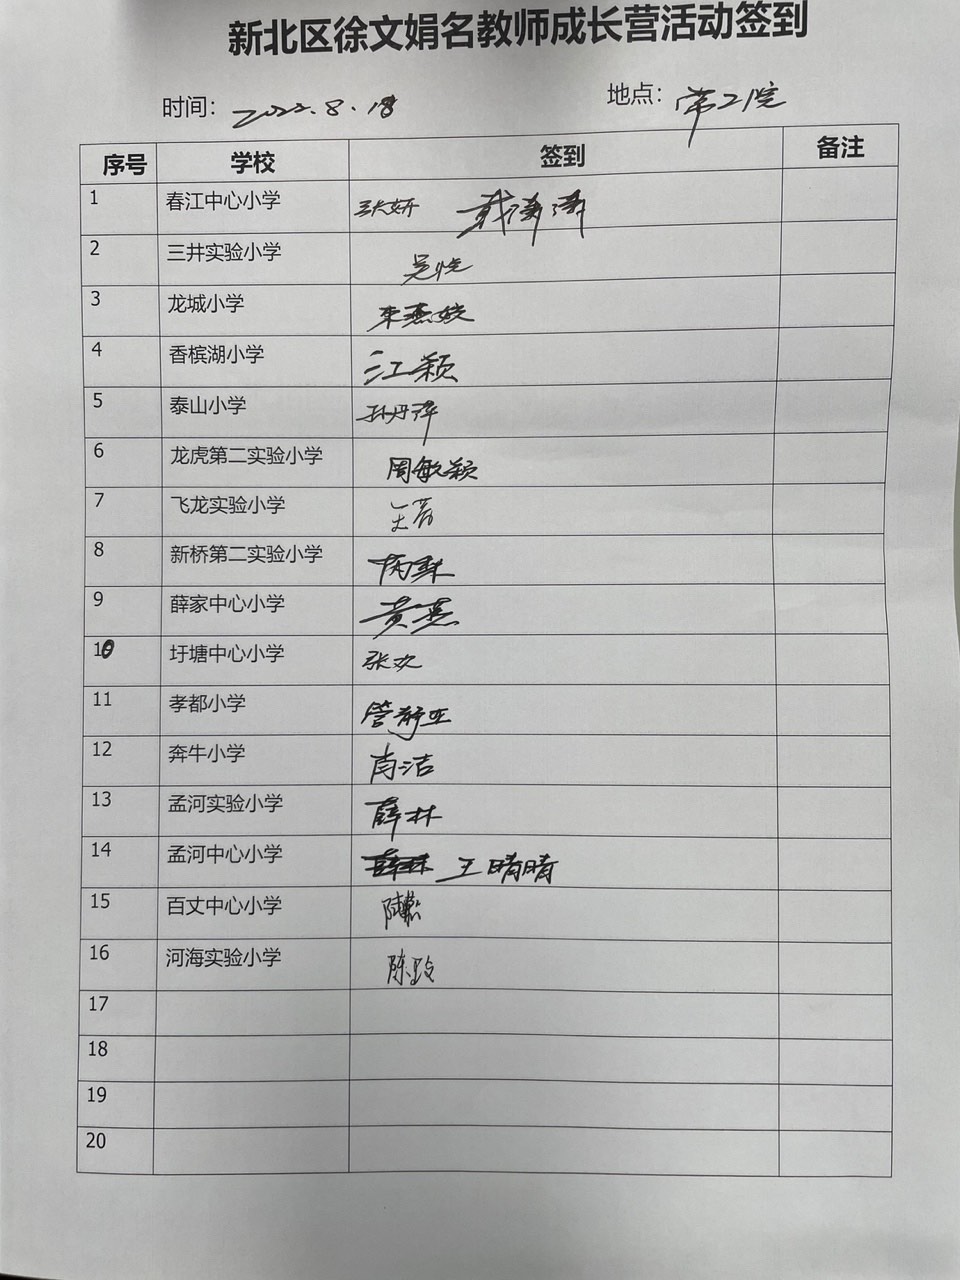 新北区徐文娟名教师成长营活动签到
时间：2022.8.18 地点：常工院
序号 学校 签到 备注
1 春江中心小学 张妍
2 三井实验小学 吴悦
3 龙城小学 朱燕姣
4 香槟湖小学 江颖
5 泰山小学 孙丹萍
6 龙虎第二实验小学 周敏颖
7 飞龙实验小学 王芳
8 新桥第二实验小学
9 薛家中心小学 黄燕
10 圩塘中心小学 张欢
11 孝都小学 管静亚
12 奔牛小学 肖洁
13 孟河实验小学 薛林
14 孟河中心小学 王晴晴
15 百丈中心小学
16 河海实验小学 陈玲
17
18
19
20